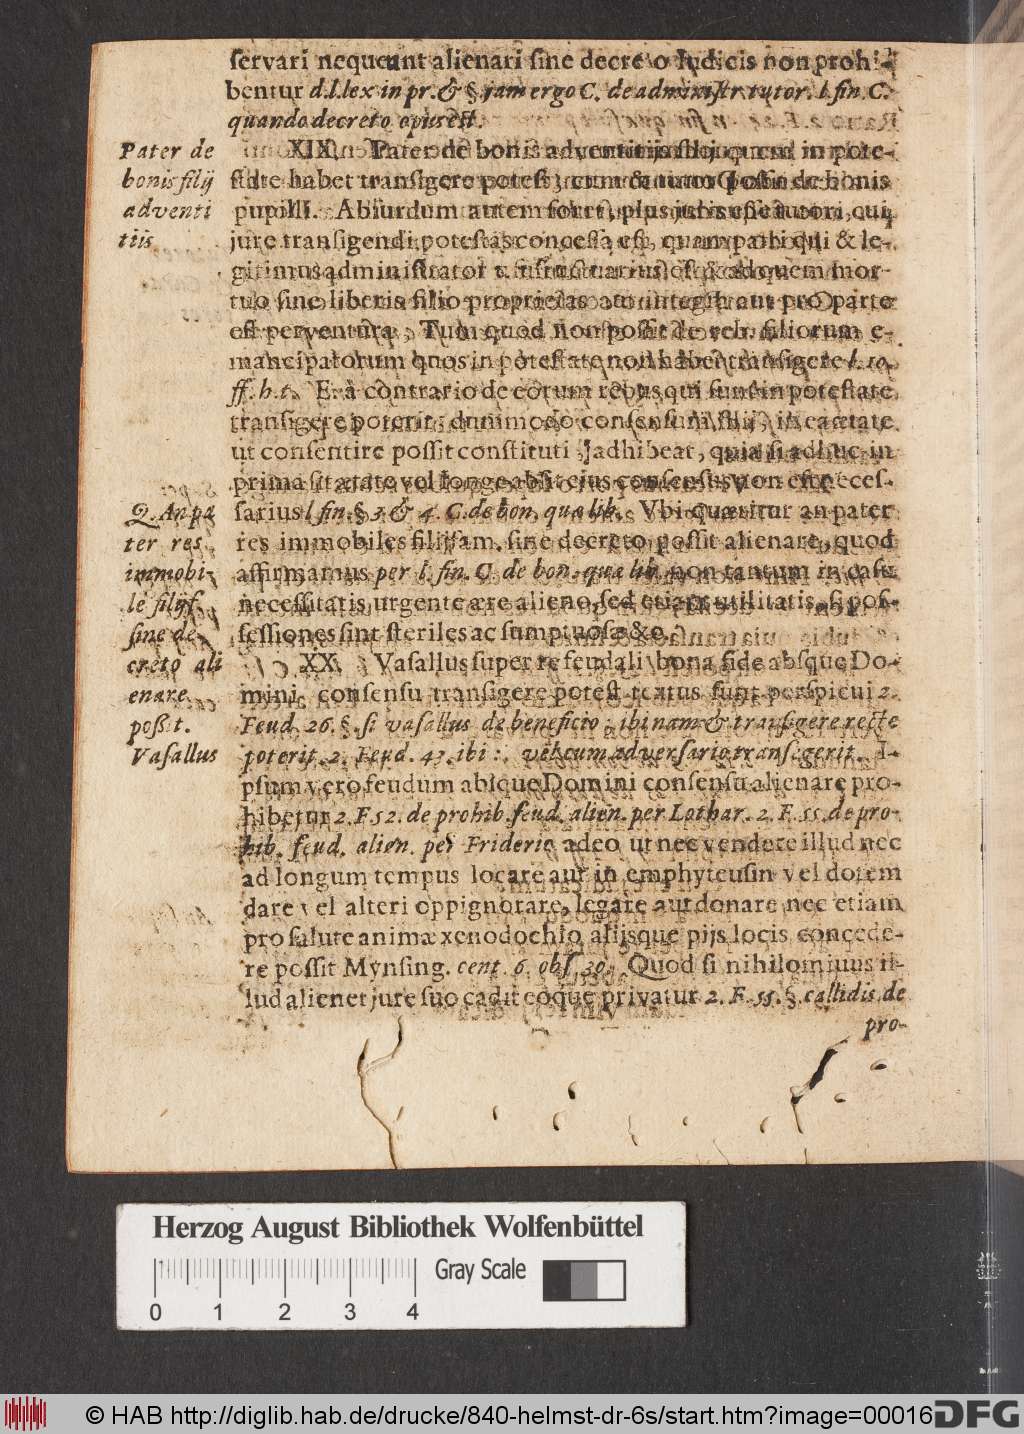 servari nequeunt alienari sine decreto Iudicis non prohi-
bentur d. l. lex in pr. & §. jam ergo C. de administr. tutor. l. fin. C.
quando decreto opus est.
Pater de
bonis filij
adventi
tiis
XIX. Pater de bonis adventitijs filij quem in pote-
state habet transigere potest, cum & tutor possit de bonis
pupilli. Absurdum autem foret, plus juris esse tutori, cui
jure transigendi potestas concessa est, quam patri qui & le-
gitimus administrator & usufructuarius est & ad quem mor-
tuo sine liberis filio proprietas aut integra aut pro parte
est perventura, Tum quod non possit de reb. filiorum e-
mancipatorum quos in potestate non habet transigere l. 10.
ff. h. t. E. à contrario de eorum rebus qui sunt in potestate
transigere poterit, dummodo consensum filij, in ea ætate
ut consentire possit constituti adhibeat, quia si adhuc in
prima sit ætate vel longe absit ejus consensus non est neces-
sarius l. fin. § 3. & 4. C. de bon. quæ lib. Vbi quæritur an pater
res immobiles filijfam. sine decreto possit alienare, quod
affirmamus per l. fin. C. de bon. quæ lib. non tantum in casu
necessitatis urgente ære alieno, sed etiam utilitatis, si pos-
sessiones sint steriles ac sumptuosæ &c.
Q. An pa
ter res
immobi-
le filijf.
sine de
creto ali
enare
poss:t.
Vasallus
XX. Vasallus super re feudali bona fide absque Do-
mini consensu transigere potest textus sunt perspicui 2.
Feud. 26. §. si vasallus de beneficio, ibi nam & transigere recte
poterit. 2. Feud. 43. ibi: vel cum adversario transigerit. I-
psum vero feudum absque Domini consensu alienare pro-
hibetur 2. F. 52. de prohib. feud. alien. per Lothar. 2. F. 55. de pro-
hib. feud. alien. per Frideric. adeo ut nec vendere illud nec
ad longum tempus locare aut in emphyteusin vel dotem
dare vel alteri oppignorare, legare aut donare nec etiam
pro salute animæ xenodochio alijsque pijs locis concede-
re possit Mynsing. cent. 6. obs. 30. Quod si nihilominus il-
lud alienet jure suo cadit eoque privatur 2. F. 55. §. callidis de
pro-
Herzog August Bibliothek Wolfenbüttel
Gray Scale
0 1 2 3 4
© HAB http://diglib.hab.de/drucke/840-helmst-dr-6s/start.htm?image=00016
DFG